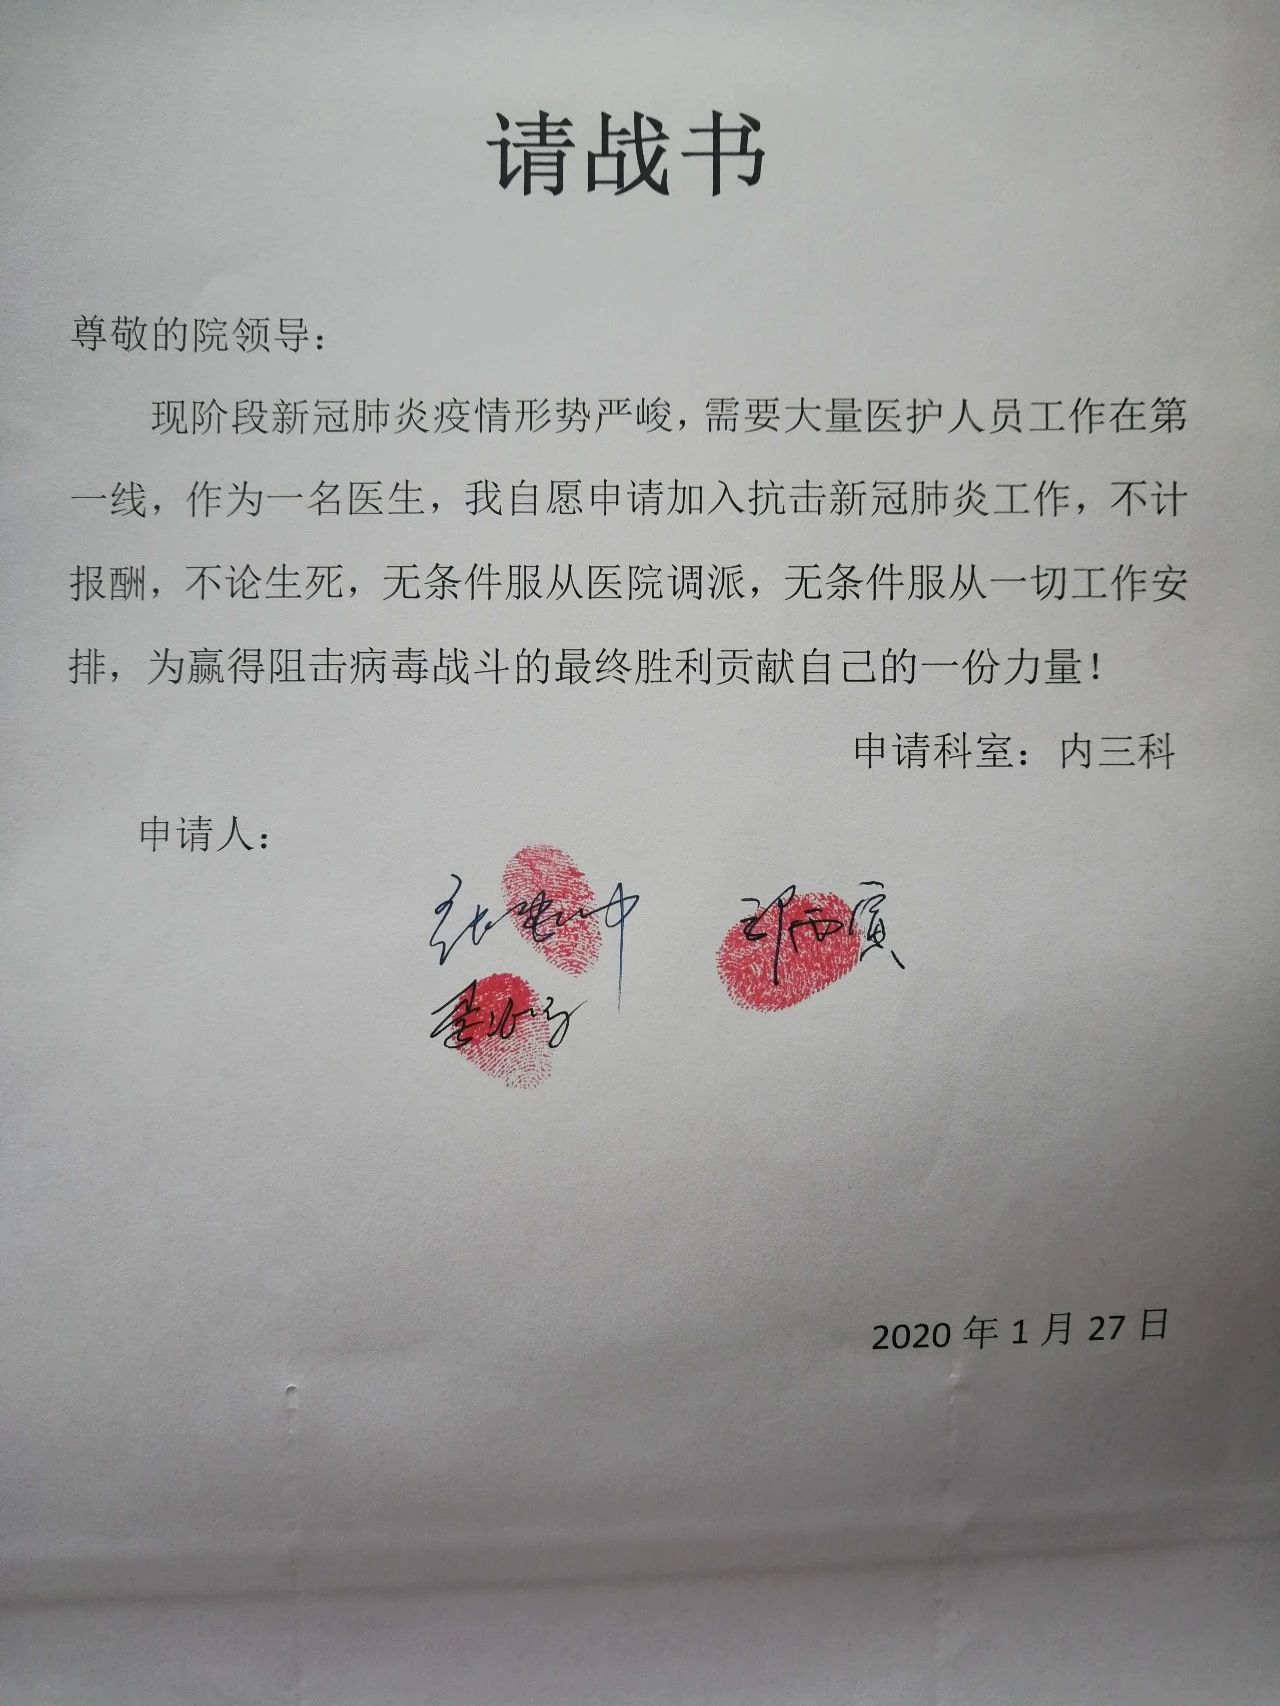 请战书
尊敬的院领导：
现阶段新冠肺炎疫情形势严峻，需要大量医护人员工作在第
一线，作为一名医生，我自愿申请加入抗击新冠肺炎工作，不计
报酬，不论生死，无条件服从医院调派，无条件服从一切工作安
排，为赢得阻击病毒战斗的最终胜利贡献自己的一份力量！
申请科室：内三科
申请人：
2020 年 1 月 27 日